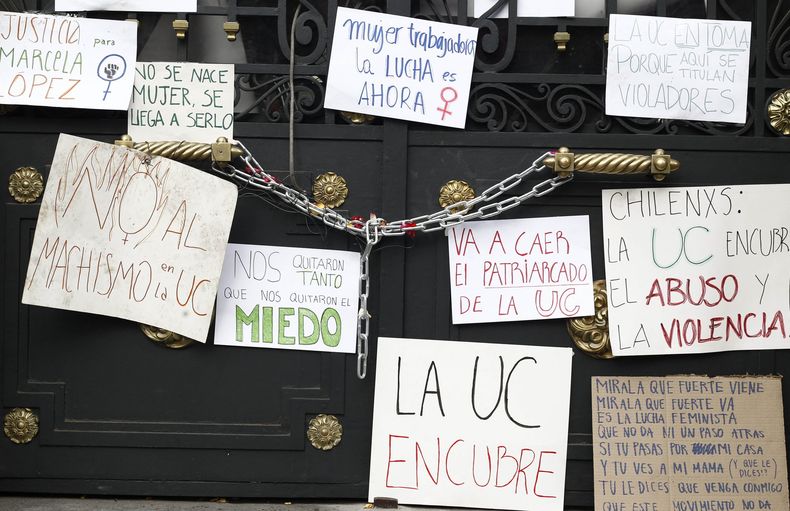 JUSTICIA para
MARCELA
LÓPEZ
NO SE NACE
MUJER, SE
LLEGA A SERLO
mujer trabajadora
la LUCHA es
AHORA
LA UC EN TOMA
PORQUE AQUÍ SE
TITULAN
VIOLADORES
NO AL
MACHISMO en
la UC
NOS QUITARON
TANTO
QUE NOS QUITARON EL
MIEDO
VA A CAER
El PATRIARCADO
DE LA UC
CHILENXS:
LA UC ENCUBRE
EL ABUSO Y
LA VIOLENCIA
LA UC
ENCUBRE
MIRALA QUE FUERTE VIENE
MIRALA QUE FUERTE VA
ES LA LUCHA FEMINISTA
QUE NO DA NI UN PASO ATRAS
SI TU PASAS POR MI CASA
Y TU VES A MI MAMA (Y QUE LE
DICES!?)
TU LE DICES QUE VENGA CONMIGO
QUE ESTE MOVIMIENTO NO DA